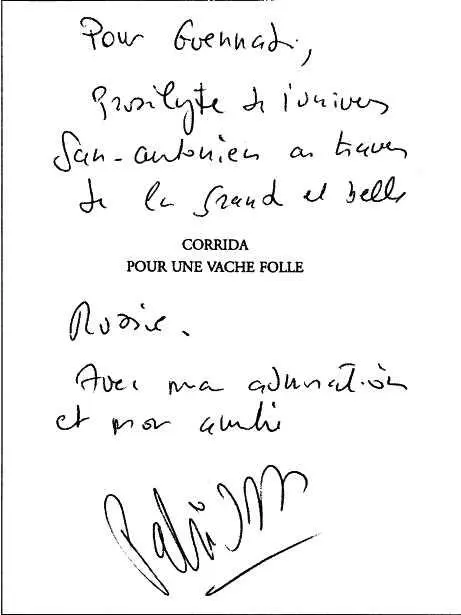 Pour Guennadi,
Prosilyte de l'univers
San-antonien au travers
de la grand et belle
CORRIDA
POUR UNE VACHE FOLLE
Russie.
Avec mon admiration
et mon amitié